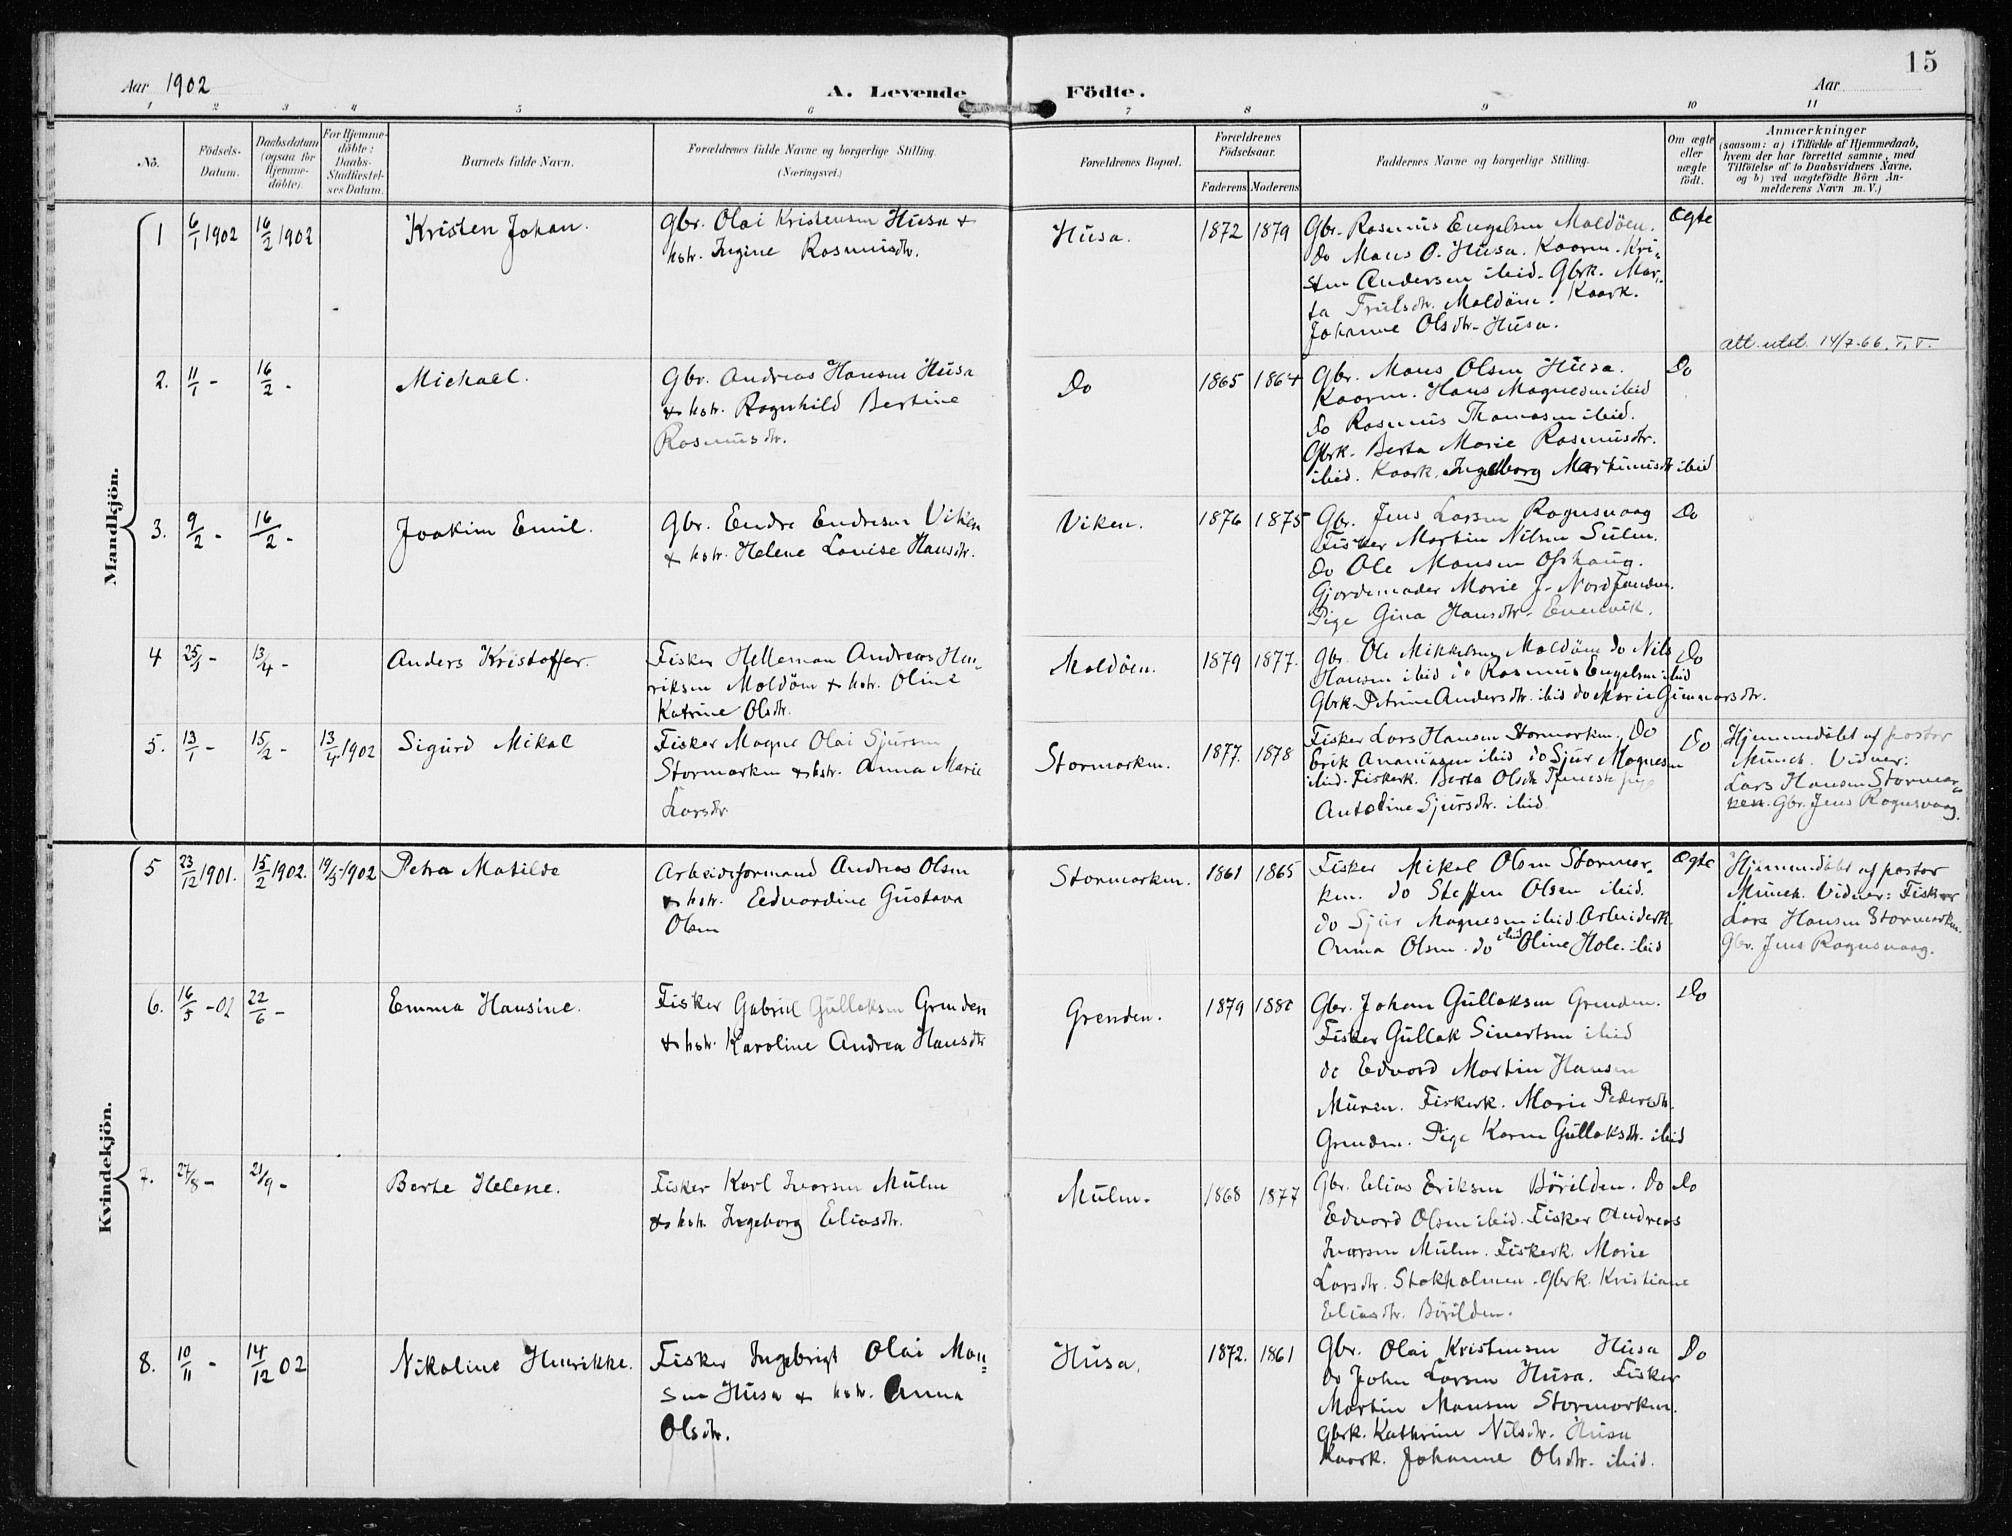 15
Aar 1902
A. Levende Födte.
Aar
1 2 3 4 5 6 7 8 9 10 11
No.
Födsels-
Datum.
Daabsdatum
(ogsaa for
Hjemme-
döbte).
For Hjemme-
döbte:
Daabs-
Stadfæstel-
ses Datum.
Barnets fulde Navn.
Forældrenes fulde Navne og borgerlige Stilling.
(Næringsvei.)
Forældrenes Bopæl.
Forældrenes
Födselsaar.
Faderens Moderens
Faddernes Navne og borgerlige Stilling.
Om ægte
eller
uægte
födt.
Anmærkninger
(saasom: a) i Tilfælde af Hjemmedaab,
hvem der har forrettet samme, med
Tilföielse af to Daabsvidners Navne.
og b) ved uægtefödte Börn An-
melderens Navn m. V.)
Mandkjön.
1 6/1 1902 16/2 1902 Kristen Johan.
Gbr. Olai Kristensen Husa +
hstr. Ingine Rasmusdtr.
Husa. 1872 1879
Gbr. Rasmus Engelsen Moldöen.
do Mons O. Husa. Kaarm. Kri-
sten Andersen ibid. Gbrk. Mar-
ta Trulsdtr. Moldöen. Kaark.
Johanne Olsdtr. Husa.
Ægte
att. utst. 14/7-66. T.T.
2. 11/1 - 16/2 - Michael.
Gbr. Andreas Hansen Husa
+ hstr. Ragnhild Bertine
Rasmusdtr.
Do 1865 1864
Gbr. Mons Olsen Husa.
Kaarm. Hans Magnesen ibid
do Rasmus Thomasen ibid.
Gbrk. Berta Marie Rasmusdtr.
ibid. Kaark. Ingeborg Martinusdtr ibid
Do
3. 9/2 - 16/2 - Joakim Emil.
Gbr. Endre Endresen Viken
+ hstr. Helene Lovise Hansdtr.
Viken. 1876 1875
Gbr. Jens Larsen Ragnsvaag
Fisker Martin Nilsen Sulen.
Do Ole Monsen
Gjordemoder Marie J.
Pige Gina Hansdtr. Evenvik.
Do
4 25/3 - 13/4 - Anders Kristoffer.
Fisker Helleman Andreas Hen-
riksen Moldöen + hstr. Oline
Katrine Olsdtr.
Moldöen. 1879 1877.
Gbr. Ole Mikkelsen Moldöen do Nils
Hansen ibid do Rasmus Engelsen ibid
Gbrk. Petrine Andersdtr. ibid do Marie Gunnarsdtr.
Do
5. 13/1 - 15/2 - 13/4 1902 Sigurd Mikal
Fisker Magne Olai Sjursen
Stormarken + hstr. Anna Marie
Larsdtr.
Stormarken. 1877. 1878
Fisker Lars Hansen Stormarken. Do
Erik Ananiasen ibid do Sjur Magnesen
ibid. Fiskerk. Berta Olsdtr Tjeneste pige
Antoline Sjursdtr. ibid
Do
Hjemmedöbt af pastor
Münch. Vidner:
Lars Hansen Stormar-
ken. Gbr. Jens Ragnsvaag.
Kvindekjön.
5 23/12 1901. 15/2 1902. 19/5 1902 Petra Matilde
Arbeidsformand Andreas Olsen
+ hstr. Edvardine Gustava
Olsen
Stormarken. 1861 1865
Fisker Mikal Olsen Stormar-
ken. do Steffen Olsen ibid.
do Sjur Magnesen ibid. Arbeiderk.
Anna Olsen ibid. do Oline Hole. ibid
Ægte
Hjemmedöbt af pastor
Münch. Vidner: Fisker
Lars Hansen Stormarken.
Gbr. Jens Ragnsvaag.
6. 16/5 -02 22/6 - Emma Hansine.
Fisker Gabriel Gullaksen Grenden
+ hstr. Karoline Andrea Hansdtr
Grenden. 1879 1880
Gbr. Johan Gullaksen Grenden.
Fisker Gullak Sivertsen ibid
do Edvard Martin Hansen
Muren. Fiskerk. Marie Pedersdtr.
Grenden. Pige Karen Gullaksdtr. ibid
Do
7. 24/8 - 21/9 - Berte Helene.
Fisker Karl Ivarsen Mulen
+ hstr. Ingeborg Eliasdtr.
Mulen. 1868 1877
Gbr. Elias Eriksen Börilden. Do
Edvard Olsen ibid. Fisker Andreas
Ivarsen Mulen. Fiskerk. Marie
Larsdtr. Stokholmen. Gbrk. Kristiane
Eliasdtr. Börilden.
Do
8. 10/11 - 14/12 02 Nikoline Henrikke.
Fisker Ingebrigt Olai Mon-
sen Husa + hstr. Anna
Olsdtr.
Husa. 1872. 1861
Gbr. Olai Kristensen Husa
do John Larsen Husa. Fisker
Martin Monsen Stormarken.
Gbrk. Kathrine Nilsdtr. Husa
Kaark. Johanne Olsdtr. ibid.
Do